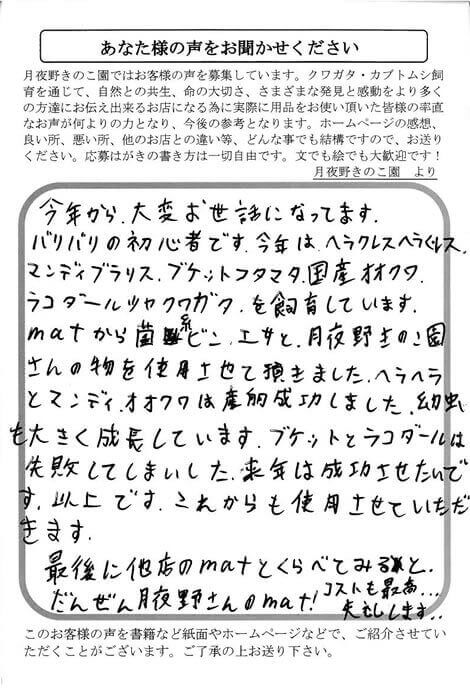 あなた様の声をお聞かせください
月夜野きのこ園ではお客様の声を募集しています。クワガタ・カブトムシ飼
育を通じて、自然との共生、命の大切さ、さまざまな発見と感動をより多く
の方達にお伝え出来るお店になる為に実際に用品をお使い頂いた皆様の率直
なお声が何よりの力となり、今後の参考となります。ホームページの感想、
良い所、悪い所、他のお店との違い等、どんな事でも結構ですので、お送り
ください。応募はがきの書き方は一切自由です。文でも絵でも大歓迎です！
月夜野きのこ園　より
今年から、大変お世話になってます。
バリバリの初心者です。今年は、ヘラクレスヘラクレス、
マンディブラリス、ブケットフタマタ、国産オオクワ、
ラコダールツヤクワガタ、を飼育しています。
matから菌糸ビン、エサと、月夜野きのこ園
さんの物を使用させて頂きました、ヘラヘラ
とマンディ、オオクワは産卵成功しました、幼虫
も大きく成長しています。ブケットとラコダールは
失敗してしまいした、来年は成功させたいで
す、以上です、これからも使用させていただ
きます。
最後に他店のmatとくらべてみると、
だんぜん月夜野さんのmat!
コストも最高...
失礼します..
このお客様の声を書籍など紙面やホームページなどで、ご紹介させてい
ただくことがございます。ご了承の上お送り下さい。